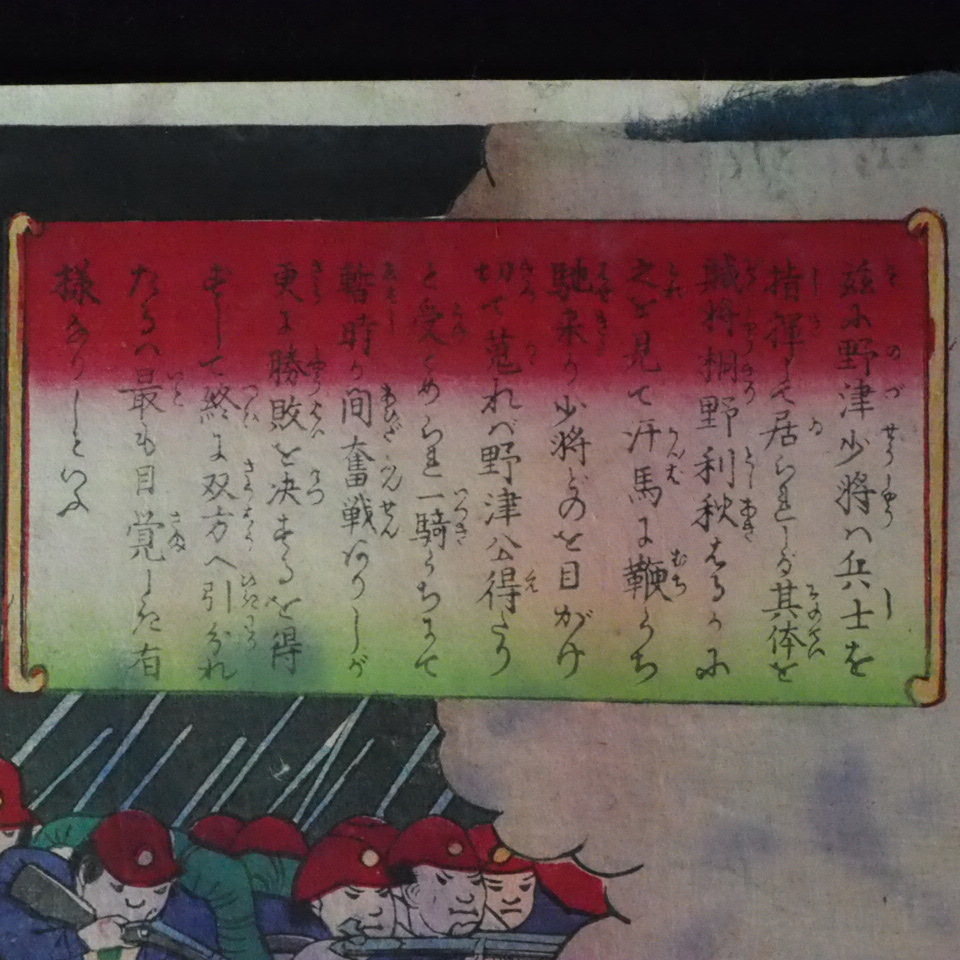 茲に野津少将ハ兵士を
指揮して居られしが其体を
賊将桐野利秋はるかに
之を見て汗馬に鞭うち
馳来り少将どのを目がけ
切て蒐れバ野津公得たり
と受とめられ一騎うちにて
暫時の間奮戦ありしが
更に勝敗を决するを得
ずして終に双方へ引分れ
たるハ最も目覚しき有
様なりしといふ